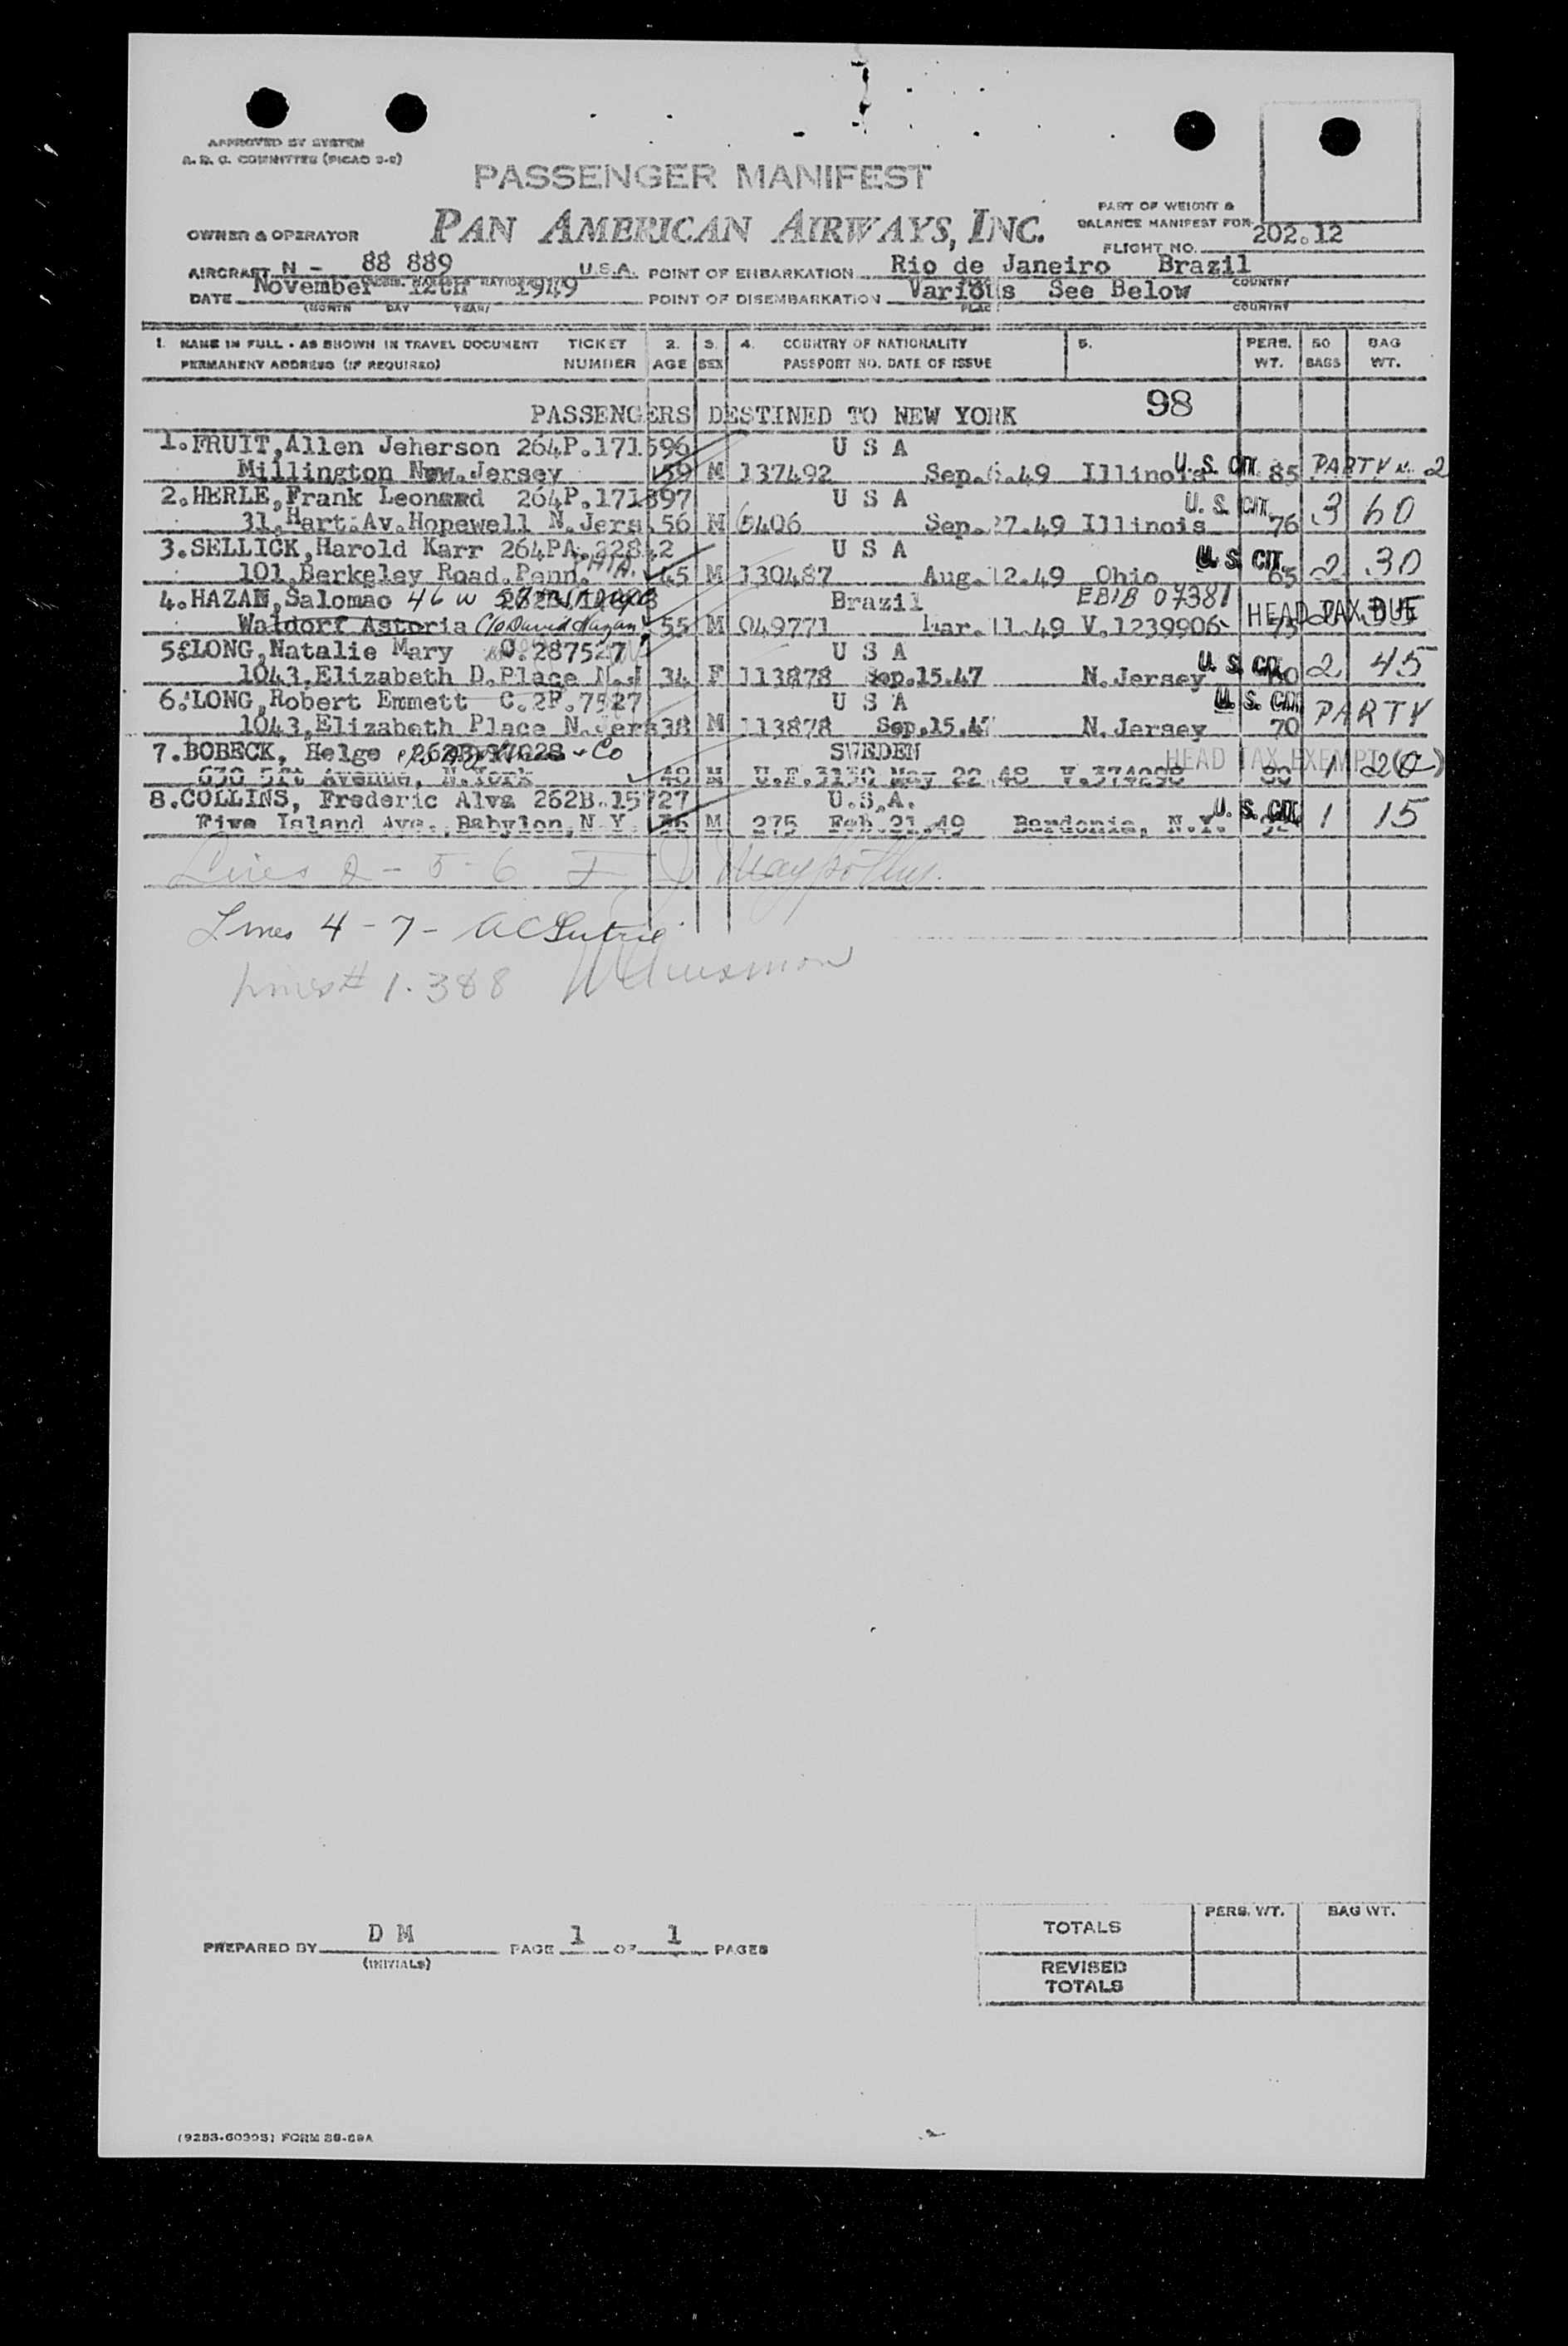 APPROVED BY SYSTEM
A. R. C. COMMITTEE (PICAO 2-2)
PASSENGER MANIFEST
PAN AMERICAN AIRWAYS, INC.
OWNER & OPERATOR
PART OF WEIGHT &
BALANCE MANIFEST FOR
FLIGHT NO. 202.12
AIRCRAFT N - 88 889 U.S.A. POINT OF EMBARKATION Rio de Janeiro Brazil
COUNTRY
DATE November 12th 1949 POINT OF DISEMBARKATION Various See Below
(MONTH DAY YEAR) PLACE COUNTRY
1. NAME IN FULL - AS SHOWN IN TRAVEL DOCUMENT TICKET 2. 3. 4. COUNTRY OF NATIONALITY 5. PERS. NO BAG
PERMANENT ADDRESS (IF REQUIRED) NUMBER AGE SEX PASSPORT NO. DATE OF ISSUE WT. BAGS WT.
PASSENGERS DESTINED TO NEW YORK 98
1.FRUIT,Allen Jeherson 264P.171596 U S A
Millington New.Jersey 59 M 137492 Sep.6.49 Illinois U. S. CIT. 85 PARTY N. 2
2.HERLE,Frank Leonard 264P.171597 U S A
31.Hart.Av.Hopewell N.Jers 56 M 6406 Sep.27.49 Illinois U. S. CIT. 76 3 60
3.SELLICK,Harold Karr 264PA. U S A
101.Berkeley Road.Penn. PHIA. 45 M 130487 Aug.12.49 Ohio U. S. CIT. 65 2 30
4.HAZAN,Salomao 46 W Brazil EBIB 07381
Waldorf Astoria C/o David Hazan 55 M 049771 Mar.11.49 V.1239906 HEAD TAX DUE
5.LONG,Natalie Mary C.287527 U S A
1043.Elizabeth D.Place N.J 34 F 113878 Sep.15.47 N.Jersey U. S. CIT. 2 45
6.LONG,Robert Emmett C.2P.7527 U S A
1043.Elizabeth Place N.Jers 38 M 113878 Sep.15.47 N.Jersey U. S. CIT. 70 PARTY
7.BOBECK, Helge Co SWEDEN HEAD TAX EXEMPT
630 5ft Avenue, N.York 48 M May 22 48 V.374298 80 1 20
8.COLLINS, Frederic Alva 262B.15727 U.S.A.
Five Island Ave., Babylon, N.Y. M 275 Feb.21.49 Bardonia, N.Y. U. S. CIT. 1 15
Lines 2 - 5 - 6
Lines 4 - 7 -
1. 3 & 8
TOTALS PERS. WT. BAG WT.
PREPARED BY D M PAGE 1 OF 1 PAGES
(INITIALS)
REVISED
TOTALS